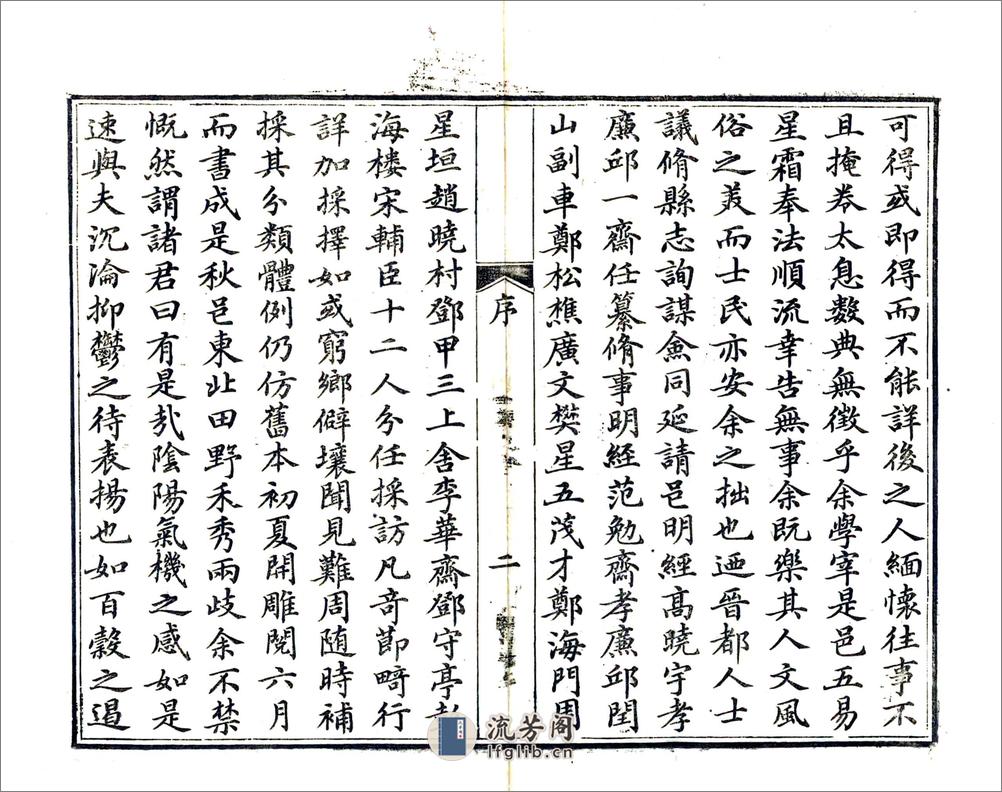 可得或即得而不能詳後之人緬懷往事不
且掩卷太息數典無徵乎余學宰是邑五易
星霜奉法順流幸告無事余既樂其人文風
俗之美而士民亦安余之拙也迺晉都人士
議脩縣志詢謀僉同延請邑明經高曉宇孝
廉邱一齋任纂脩事明經范勉齋孝廉邱閏
山副車鄭松樵廣文樊星五茂才鄭海門周
序
二
星垣趙曉村鄧甲三上舍李華齋鄧守亭
海樓宋輔臣十二人分任採訪凡奇節畸行
詳加採擇如或窮鄉僻壤聞見難周随時補
採其分類體例仍仿舊本初夏開雕閱六月
而書成是秋邑東北田野禾秀兩歧余不禁
慨然謂諸君曰有是哉陰陽氣機之感如是
速與夫沉淪抑鬱之待表揚也如百穀之遏
流芳阁
lfglib.cn